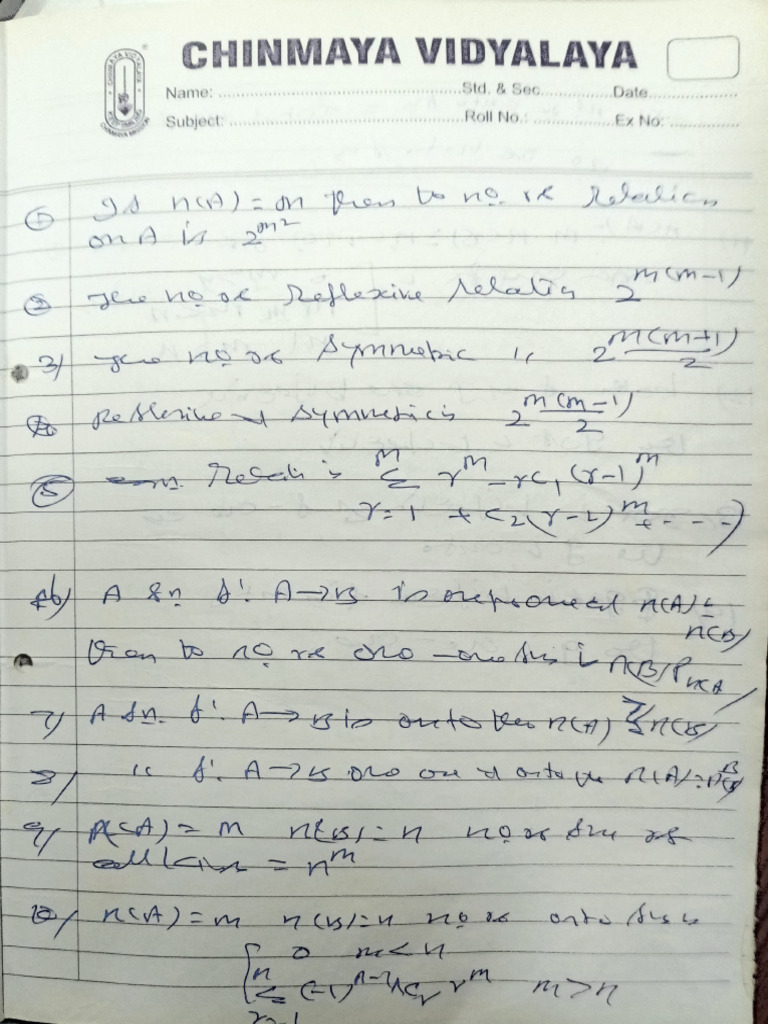 CHINMAYA VIDYALAYA
Name: Std. & Sec. Date
Subject: Roll No.: Ex No:
① If n(A) = m then to no. of Relation
on A is 2^m²
② The no of Reflexive relatio 2^m(m-1)
3) The no of Symmetric is 2^m(m+1)/2
④ Reflexive & Symmetric is 2^m(m-1)/2
⑤ Relati is m Σ r^m - rC₁ (r-1)^m
r=1 + C₂(r-2)^m + - - -)
6) A fn. f: A→B is one-one if n(A) ≤
n(B)
then to no of one-one fns is n(B)P n(A)
7) A fn. f: A→B is onto then n(A) ≥ n(B)
8) is f: A→B one one & onto the n(A) = n(B)
9) n(A) = m n(B) = n no of fns of
= n^m
10) n(A) = m n(B) = n no of onto fns is
0 m<n
n Σ (-1)^n-r nCr r^m m>n
r=1